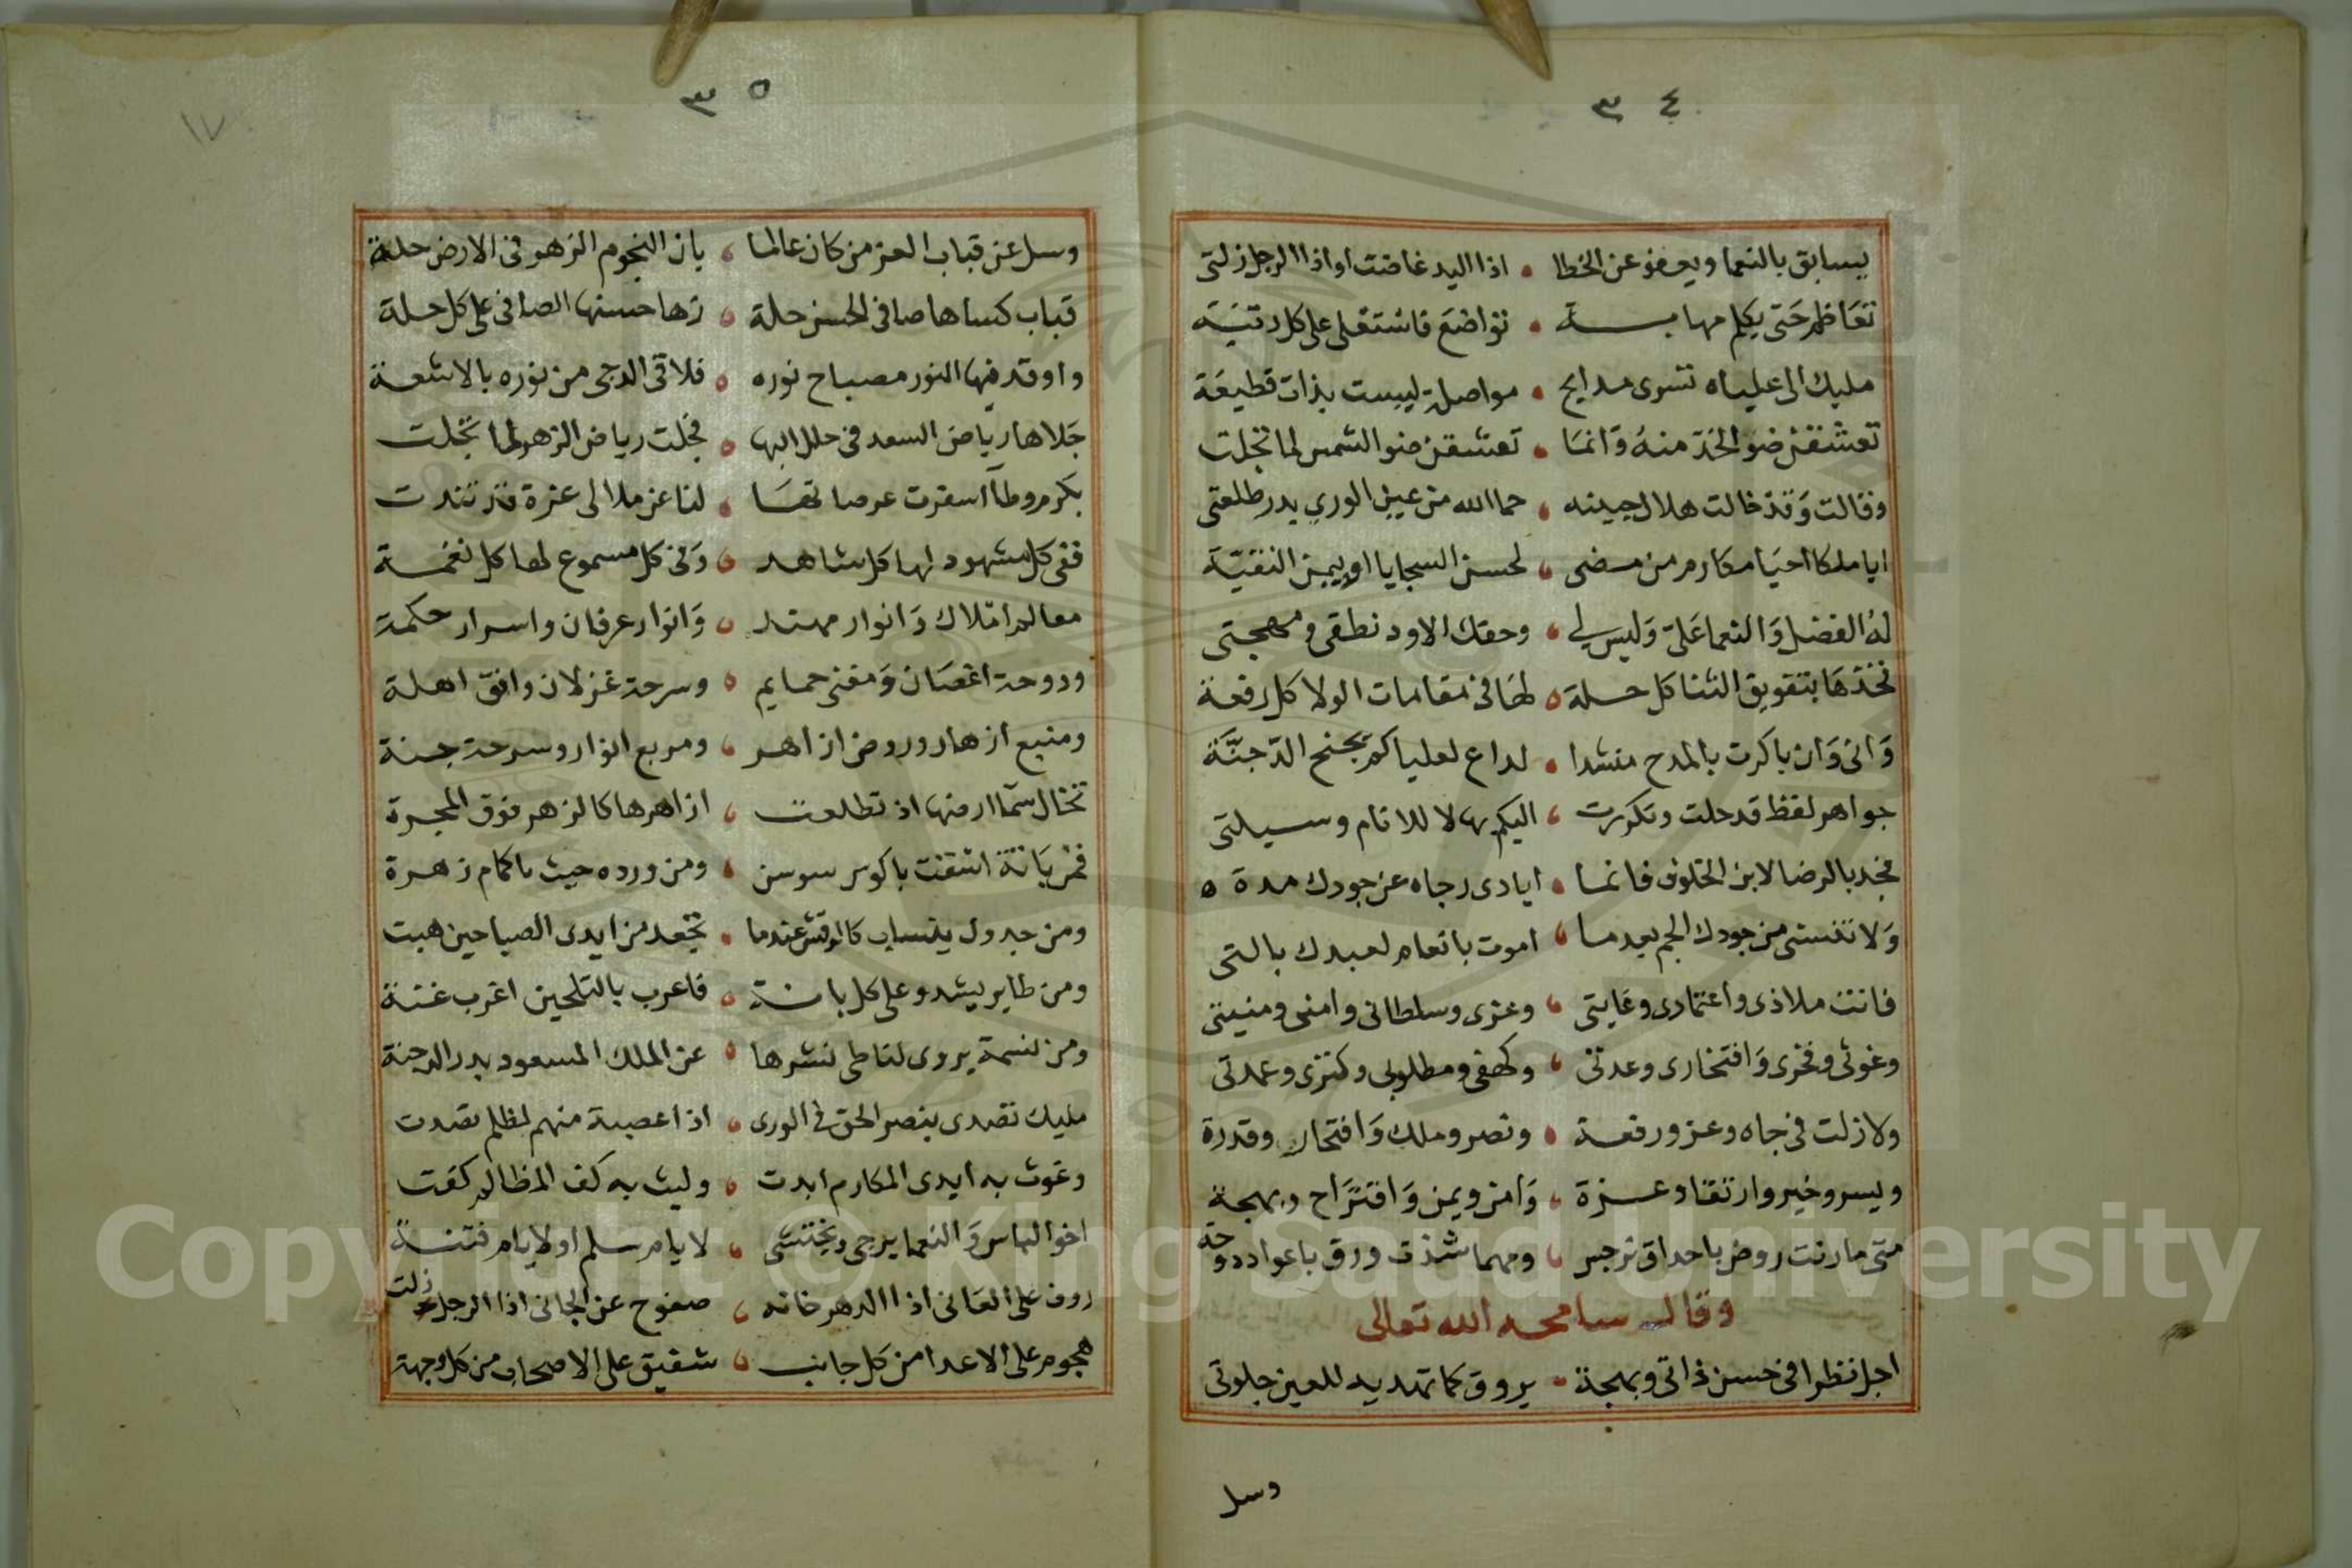 ٣٤
يسابق بالنعما ويعفو عن الخطا ، اذا اليد غاضت او اذا الرجل زلتي
تعاظم حتى يكم مهابة ، تواضع فاستعلى على كل رتبة
مليك الى علياه تسرى مدايح ، مواصلة ليست بذات قطيعة
تعشقن ضو الخد منه وانما ، تعشقن ضو الشمس لما تجلت
وقالت وقد خالت هلال جبينه ، حما الله من عين الورى بدر طلعتى
ايا ملكا احيا مكارم من مضى ، لحسن السجايا او يمن النقيّة
له الفضل والنعما علىّ وليس لى ، وحقك الا ود نطقى ومهجتى
فخذها بتفويق الثنا كل حلة ، لها فى مقامات الولا كل رفعة
وانى وان باكرت بالمدح منشدا ، لداع لعلياكم بجنح الدّجنّة
جواهر لفظ قد حلت وتكررت ، اليكم بها لا للانام وسيلتى
فجد بالرضا لابن الخلوف فانما ، ايادى رجاه عن جودك مدة
ولا تنسنى من جودك الجم بعدما ، اموت بانعام لعبدك بالتى
فانت ملاذى واعتمادى وغايتى ، وعزى وسلطانى وامنى ومنيتى
وغوثى وفخرى وافتخارى وعدتى ، وكهفى ومطلوبى وكنزى وعمدتى
ولا زلت فى جاه وعز ورفعة ، ونصر وملك وافتخار وقدرة
ويسر وخير وارتقا وعزة ، وامن ويمن واقتراح وبهجة
متى مارنت روض باحداق نرجس ، ومهما شذت ورق باعواد دوحة
وقال سامحه الله تعالى
اجل نظرا فى حسن ذاتى وبهجة ، يروق كما تهديه للعين جلوتى
وسل
٣٥
١٧
وسل عن قباب العز من كان عالما ، بان النجوم الزهو فى الارض حلة
قباب كساها صافى الحسن حلة ، زها حسنها الصافى على كل حلة
واوقد فيها النور مصباح نوره ، فلاقى الدجى من نوره بالاشعة
جلاها رياض السعد فى حلل البها ، فجلت رياض الزهو لما تجلت
بكرم وطآ اسفرت عرصاتها ، لنا عن ملا الى عزة قد تندت
ففى كل مشهود لها كل شاهد ، وفى كل مسموع لها كل نغمة
معالم املاك وانوار مهتد ، وانوار عرفان واسرار حكمة
ودوحة اغصان ومغنى حمايم ، وسرحة غزلان وافق اهلة
ومنبع ازهار وروض ازاهر ، ومربع انوار وسرحة جنة
تخال سمآ ارضها اذ تطلعت ، ازاهرها كالزهر فوق المجرة
فمن بانة اشقت باكوس سوسن ، ومن ورده حيث باكمام زهرة
ومن جدول ينساب كالرقش عندما ، تجعد من ايدى الصبا حين هبت
ومن طاير يشدو على كل بانة ، فاعرب بالتلحين اغرب غنة
ومن نسمة يروى لنا طى نشرها ، عن الملك المسعود بدر الدجنة
مليك تصدى ينصر الحق فى الورى ، اذا عصبة منهم لظلم تصدت
وغوث به ايدى المكارم ابدت ، وليث به كف المظالم كفت
اخو الباس والنعما يرجى ويختشى ، لايام سلم او لايام فتنة
روف على العانى اذا الدهر خانه ، صفوح عن الجانى اذا الرجل زلت
هجوم على الاعدا من كل جانب ، شفيق على الاصحاب من كل وجهة
Copyright © King Saud University